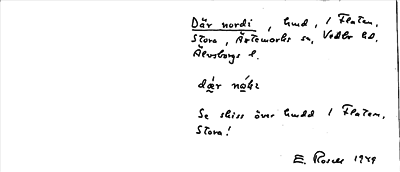 Där nordi, hmd, 1 Flaten,
Stora, Ärtemarks sn, Vedbo hd.
Älvsborgs l.
Se skiss över hmdd 1 Flaten,
Stora!
E. Rosell 1949